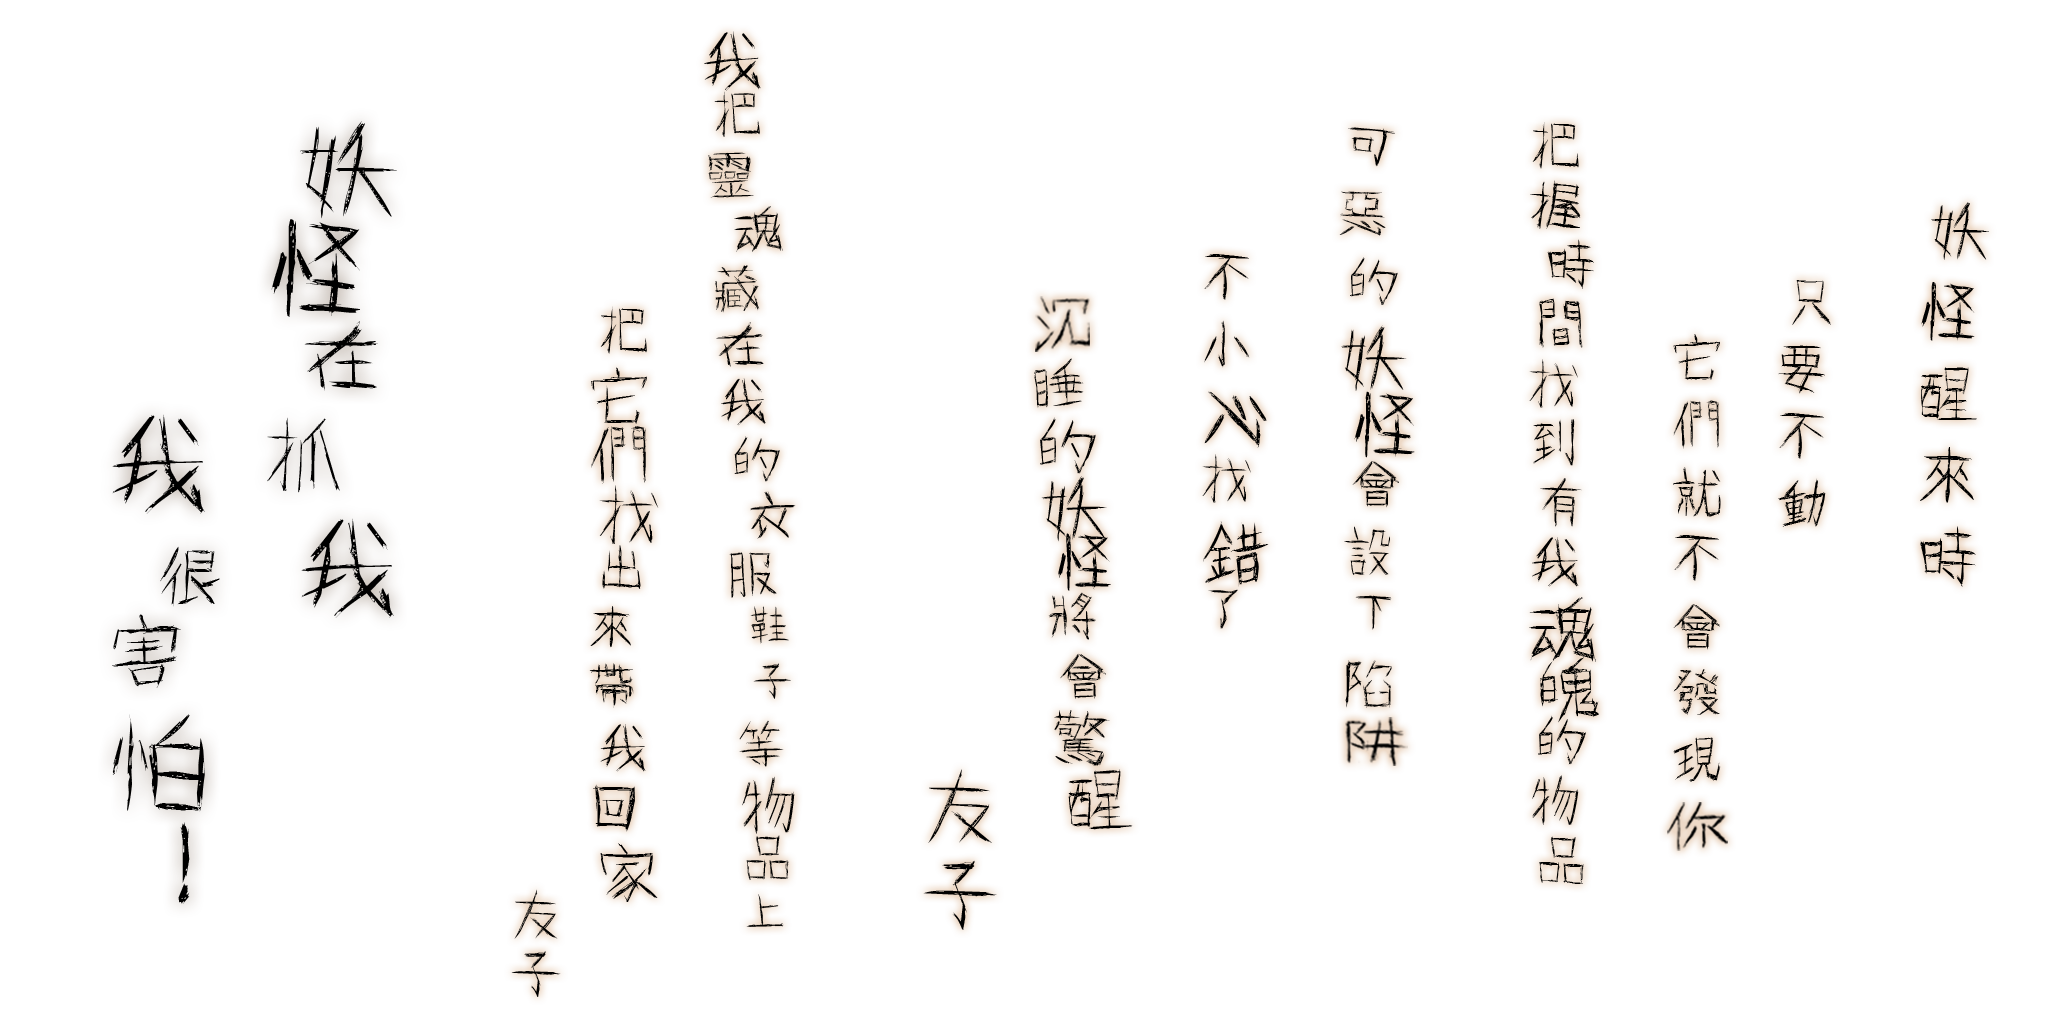 妖怪醒來時
只要不動
它們就不會發現你
把握時間找到有我魂魄的物品
可惡的妖怪會設下陷阱
不小心找錯了
沉睡的妖怪將會驚醒
友子
我把靈魂藏在我的衣服鞋子等物品上
把它們找出來帶我回家
友子
妖怪在抓我
我很害怕！